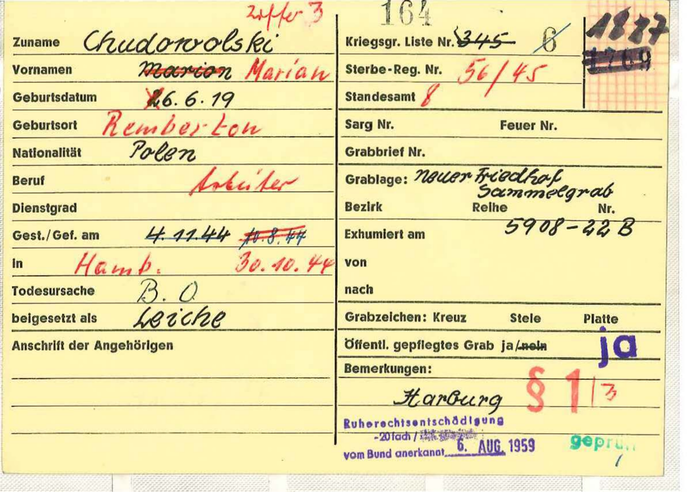 Ziffer 3
164
Zuname Chudowolski
Vornamen Marion Marian
Geburtsdatum 26.6.19
Geburtsort Remberton
Nationalität Polen
Beruf Arbeiter
Dienstgrad
Gest./Gef. am 4.11.44 10.8.44
In Hamb. 30.10.44
Todesursache B. O
beigesetzt als Leiche
Anschrift der Angehörigen
Kriegsgr. Liste Nr. 345 6
1887
1769
Sterbe-Reg. Nr. 56/45
Standesamt 8
Sarg Nr. Feuer Nr.
Grabbrief Nr.
Grablage: neuer Friedhof
Sammelgrab
Bezirk Reihe Nr.
Exhumiert am 5908-22 B
von
nach
Grabzeichen: Kreuz Stele Platte
Öffentl. gepflegtes Grab ja/nein ja
Bemerkungen:
Harburg § 1/3
Ruherechtsentschädigung
-20fach /
vom Bund anerkannt 6. AUG. 1959
geprüft